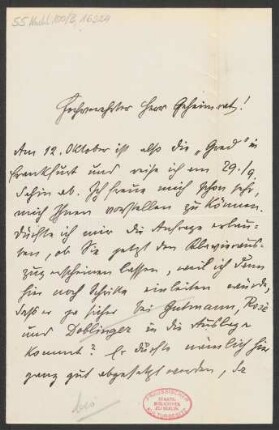 55 Nachl. 100/B, 16324
Hochverehrter Herr Geheimrat!
Am 12. Oktober ist also die „Gred" in
Frankfurt und reise ich am 29./9.
dahin ab. Ich freue mich schon sehr,
mich Ihnen vorstellen zu können.
Dürfte ich mir die Anfrage erlau-
ben, ob Sie jetzt den Klavieraus-
zug erscheinen lassen, weil ich dann
hier noch Schritte einleiten würde,
daß er ja sicher bei Gutmann, Rosé
und Doblinger in die Auslage
kommt? Er dürfte nämlich hier
ganz gut abgesetzt werden, da